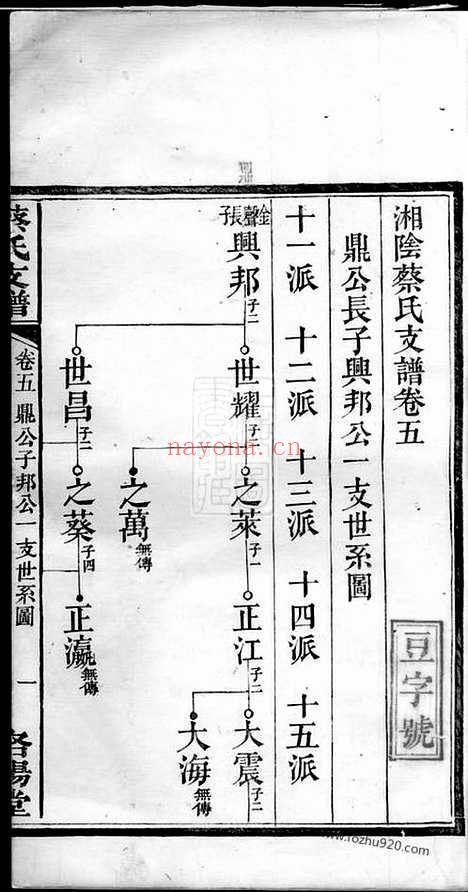 湘陰蔡氏支譜卷五
鼎公長子興邦公一支世系圖
十一派 十二派 十三派 十四派 十五派
金聲長子
興邦 子二
世耀 子二
之萊 子一
正江 子二
大震 子二
大海 無傳
之萬 無傳
世昌 子二
之葵 子四
正瀛 無傳
蔡氏支譜
卷五 鼎公子邦公一支世系圖
一
洛陽堂
豆字號
nayona.cn
www.rozhu920.com